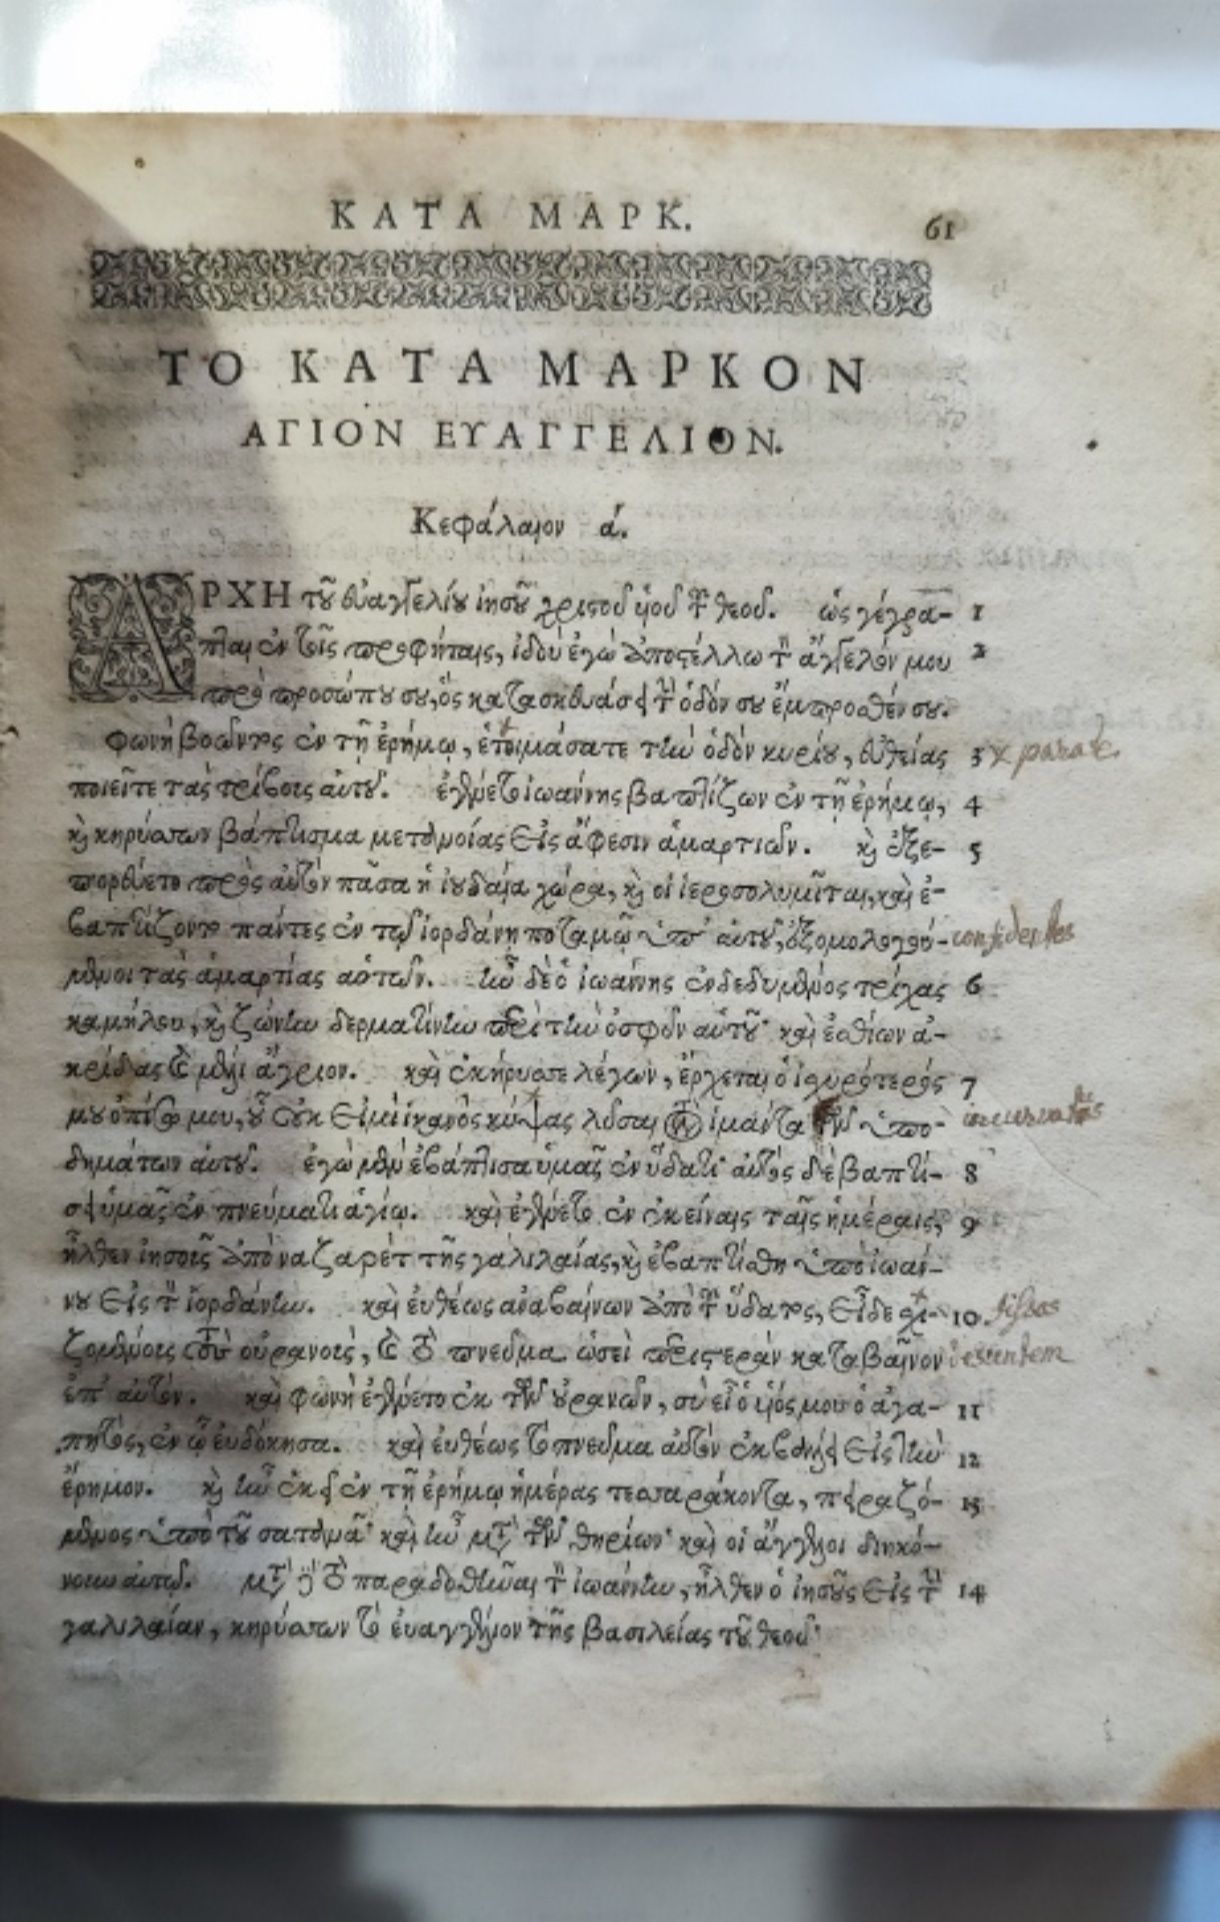 ΚΑΤΑ ΜΑΡΚ. 61
ΤΟ ΚΑΤΑ ΜΑΡΚΟΝ
ΑΓΙΟΝ ΕΥΑΓΓΕΛΙΟΝ.
Κεφάλαιον ά.
ΑΡΧΗ τοῦ εὐαγγελίου ἰησοῦ χριστοῦ υἱοῦ τοῦ θεοῦ. ὡς γέγρα- 1
πται ἐν τοῖς προφήταις, ἰδοὺ ἐγὼ ἀποστέλλω τὸν ἄγγελόν μου 2
πρὸ προσώπου σου, ὃς κατασκευάσει τὴν ὁδόν σου ἔμπροσθέν σου.
φωνὴ βοῶντος ἐν τῇ ἐρήμῳ, ἑτοιμάσατε τὴν ὁδὸν κυρίου, εὐθείας 3 x parate.
ποιεῖτε τὰς τρίβους αὐτοῦ. ἐγένετο ἰωάννης βαπτίζων ἐν τῇ ἐρήμῳ, 4
καὶ κηρύσσων βάπτισμα μετανοίας εἰς ἄφεσιν ἁμαρτιῶν. καὶ ἐξε- 5
πορεύετο πρὸς αὐτὸν πᾶσα ἡ ἰουδαία χώρα, καὶ οἱ ἱεροσολυμῖται, καὶ ἐ-
βαπτίζοντο πάντες ἐν τῷ ἰορδάνῃ ποταμῷ ὑπ' αὐτοῦ, ἐξομολογού-
μενοι τὰς ἁμαρτίας αὐτῶν. ἦν δὲ ὁ ἰωάννης ἐνδεδυμένος τρίχας 6
καμήλου, καὶ ζώνην δερματίνην περὶ τὴν ὀσφὺν αὐτοῦ· καὶ ἐσθίων ἀ-
κρίδας καὶ μέλι ἄγριον. καὶ ἐκήρυσσε λέγων, ἔρχεται ὁ ἰσχυρότερός 7
μου ὀπίσω μου, οὗ οὐκ εἰμὶ ἱκανὸς κύψας λῦσαι τὸν ἱμάντα τῶν ὑπο-
δημάτων αὐτοῦ. ἐγὼ μὲν ἐβάπτισα ὑμᾶς ἐν ὕδατι· αὐτὸς δὲ βαπτί- 8
σει ὑμᾶς ἐν πνεύματι ἁγίῳ. καὶ ἐγένετο ἐν ἐκείναις ταῖς ἡμέραις, 9
ἦλθεν ἰησοῦς ἀπὸ ναζαρὲτ τῆς γαλιλαίας, καὶ ἐβαπτίσθη ὑπὸ ἰωάν-
νου εἰς τὸν ἰορδάνην. καὶ εὐθέως ἀναβαίνων ἀπὸ τοῦ ὕδατος, εἶδε σχι- 10.
ζομένους τοὺς οὐρανοὺς, καὶ τὸ πνεῦμα ὡσεὶ περιστερὰν καταβαῖνον
ἐπ' αὐτόν. καὶ φωνὴ ἐγένετο ἐκ τῶν οὐρανῶν, σὺ εἶ ὁ υἱός μου ὁ ἀγα- 11
πητὸς, ἐν ᾧ εὐδόκησα. καὶ εὐθέως τὸ πνεῦμα αὐτὸν ἐκβάλλει εἰς τὴν 12
ἔρημον. καὶ ἦν ἐκεῖ ἐν τῇ ἐρήμῳ ἡμέρας τεσσαράκοντα, πειραζό- 13
μενος ὑπὸ τοῦ σατανᾶ· καὶ ἦν μετὰ τῶν θηρίων· καὶ οἱ ἄγγελοι διηκό-
νουν αὐτῷ. μετὰ δὲ τὸ παραδοθῆναι τὸν ἰωάννην, ἦλθεν ὁ ἰησοῦς εἰς τὴν 14
γαλιλαίαν, κηρύσσων τὸ εὐαγγέλιον τῆς βασιλείας τοῦ θεοῦ·